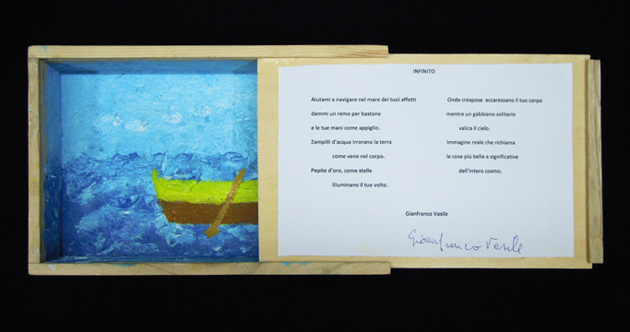 INFINITO
Aiutami a navigare nel mare dei tuoi affetti
dammi un remo per bastone
e le tue mani come appiglio.
Zampilli d'acqua irrorano la terra
come vene nel corpo.
Pepite d'oro, come stelle
illuminano il tuo volto.
Onde crespose accarezzano il tuo corpo
mentre un gabbiano solitario
valica il cielo.
Immagine reale che richiama
le cose più belle e significative
dell'intero cosmo.
Gianfranco Vasile
Gianfranco Vasile